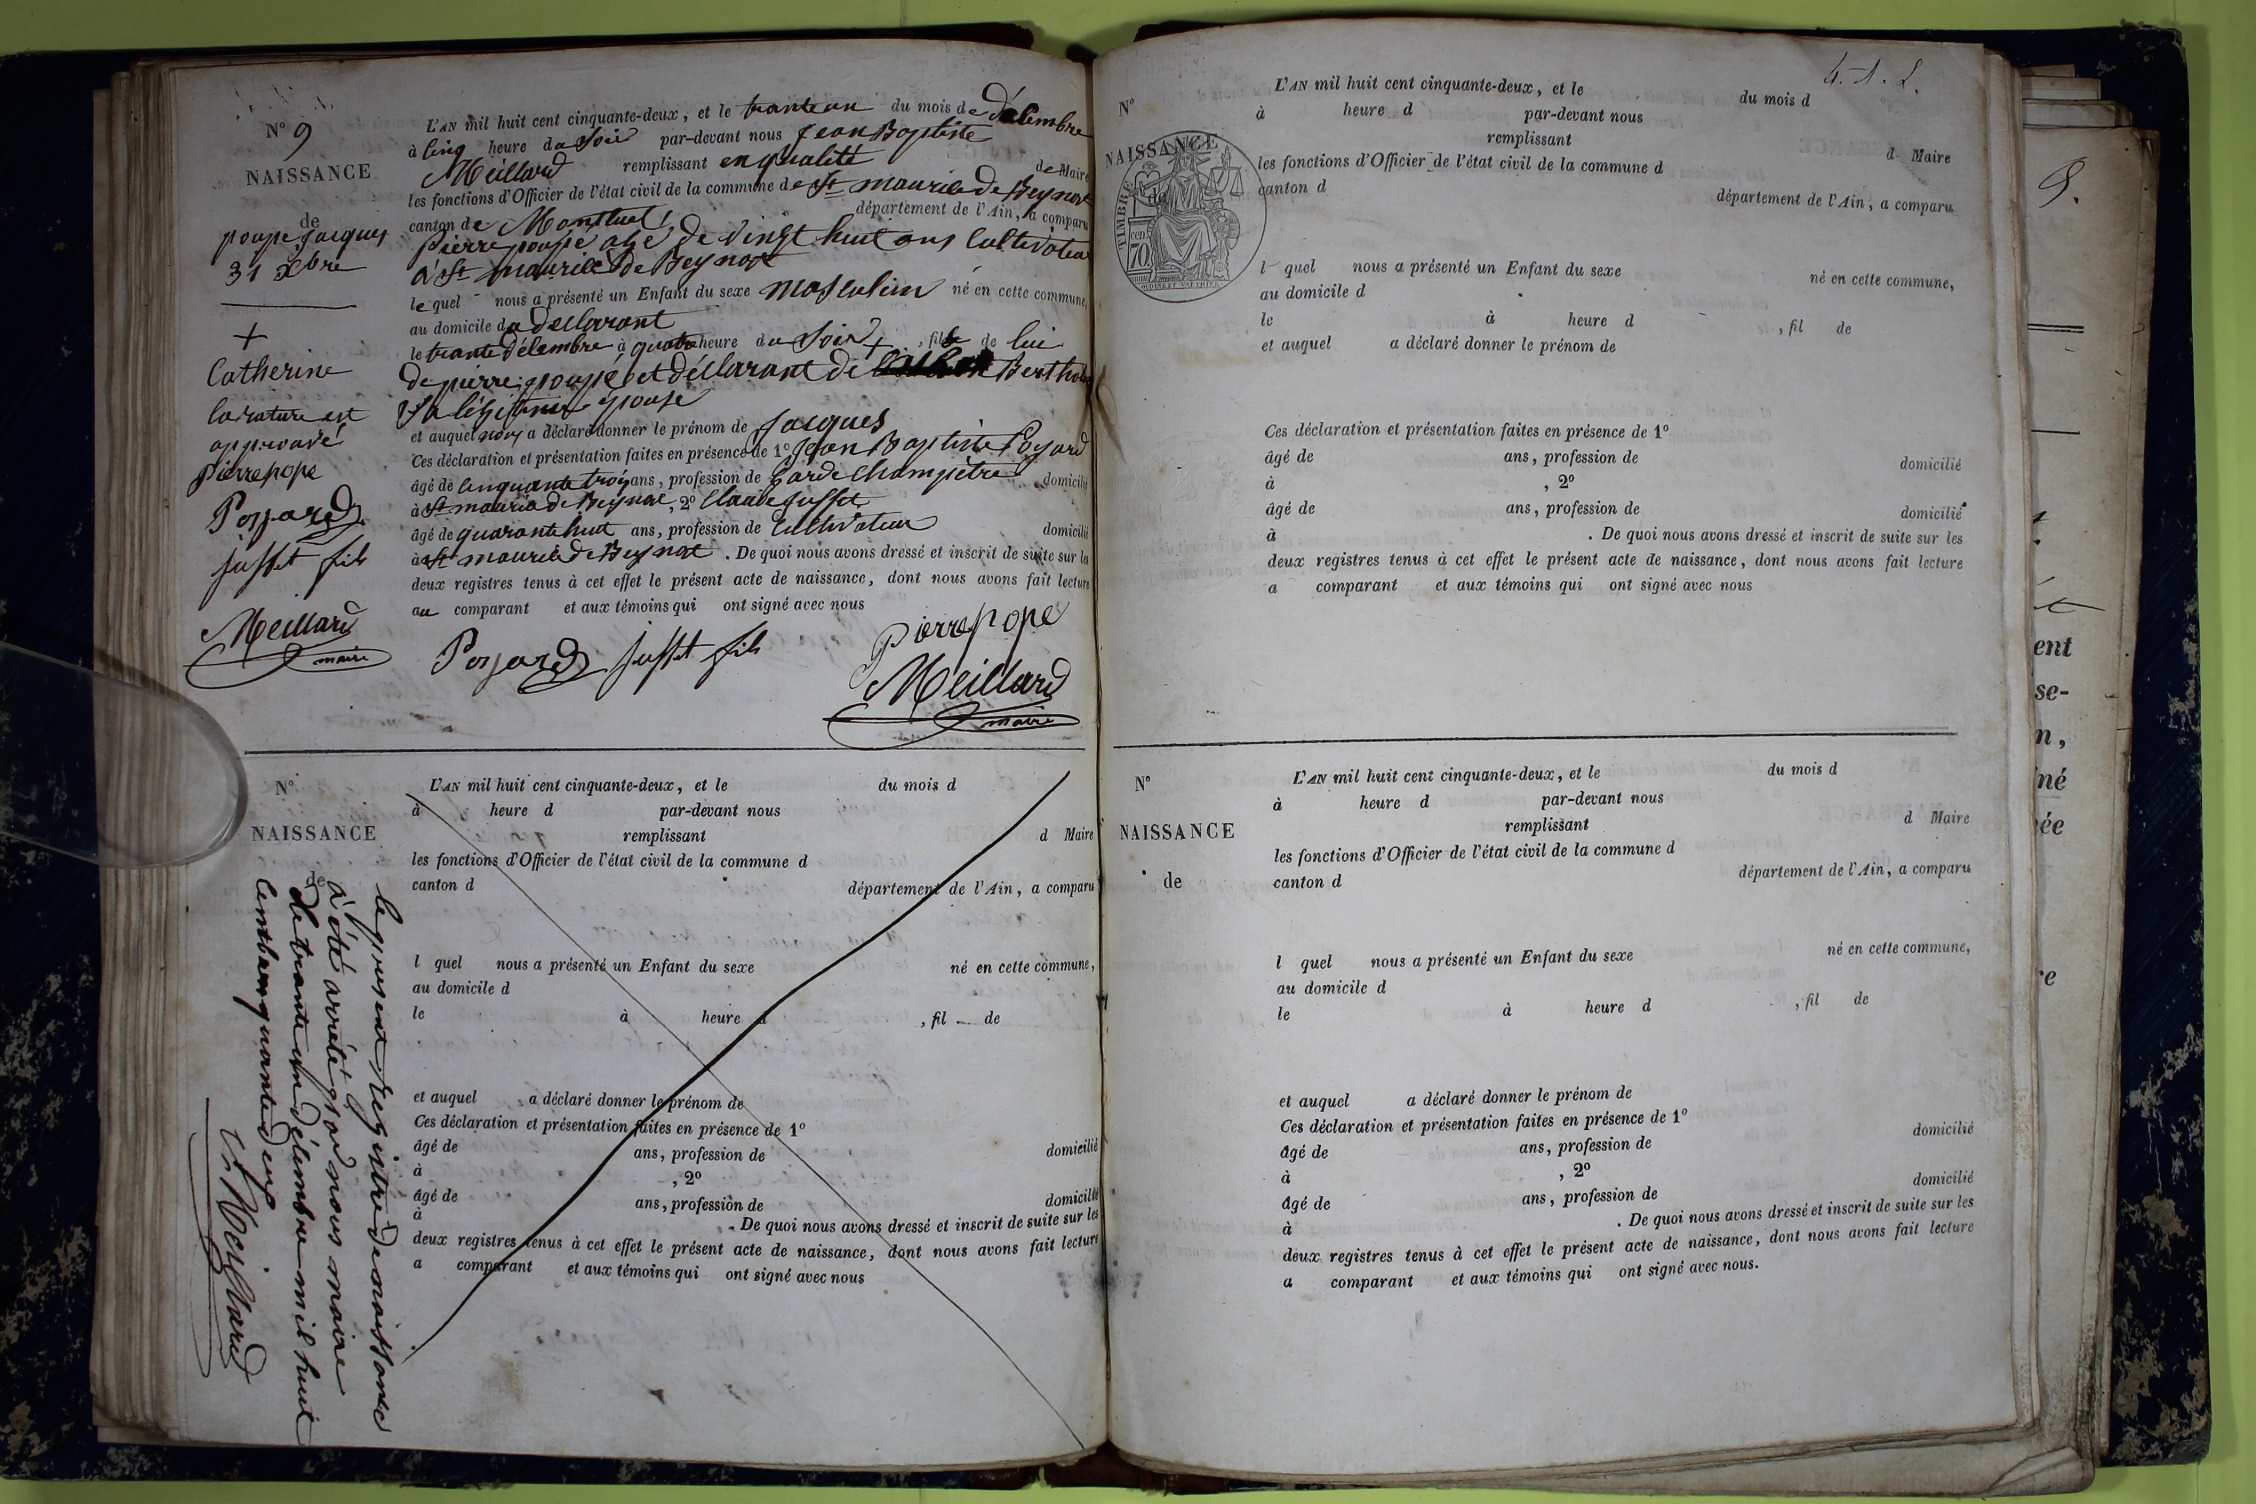 N° 9
NAISSANCE
de
poupe Jacques
31 Xbre
+
Catherine
la rature est
approuvé
pierre pope
Poyard
Juffet fils
Meillard
maire
L'AN mil huit cent cinquante-deux, et le trante un du mois de Décembre
à cinq heure du Soir par-devant nous Jean Baptiste
Meillard remplissant en qualité de Maire
les fonctions d'Officier de l'état civil de la commune de St maurice de Beynost
canton de Montluel, département de l'Ain, a comparu
Pierre poupé agé de vingt huit ans Cultivateur
à St maurice de Beynost
le quel nous a présenté un Enfant du sexe masculin né en cette commune,
au domicile du declarant
le trante Décembre à quatre heure du Soir + , fils de lui
de pierre poupé et déclarant de Berthet
Sa légitime épouse
et auquel nous a déclaré donner le prénom de Jacques
Ces déclaration et présentation faites en présence de 1° Jean Baptiste Poyard
âgé de cinquante trois ans, profession de Garde Champêtre domicilié
à St maurice de Beynost, 2° Claude Juffet
âgé de quarante huit ans, profession de Cultivateur domicilié
à St maurice de Beynost. De quoi nous avons dressé et inscrit de suite sur les
deux registres tenus à cet effet le présent acte de naissance, dont nous avons fait lecture
au comparant et aux témoins qui ont signé avec nous
pierre pope
Poyard Juffet fils
Meillard
maire
N°
NAISSANCE
de
le present Registre de naissance
a été arrêté par nous maire
le trante un Décembre mil huit
cent cinquante deux
Meillard
L'AN mil huit cent cinquante-deux, et le du mois d
à heure d par-devant nous
remplissant d Maire
les fonctions d'Officier de l'état civil de la commune d
canton d département de l'Ain, a comparu
l quel nous a présenté un Enfant du sexe né en cette commune,
au domicile d
le à heure d , fil de
et auquel a déclaré donner le prénom de
Ces déclaration et présentation faites en présence de 1°
âgé de ans, profession de domicilié
à , 2°
âgé de ans, profession de domicilié
à . De quoi nous avons dressé et inscrit de suite sur les
deux registres tenus à cet effet le présent acte de naissance, dont nous avons fait lecture
a comparant et aux témoins qui ont signé avec nous
4. 1. L.
N°
NAISSANCE
de
TIMBRE
70 cen.
L'AN mil huit cent cinquante-deux, et le du mois d
à heure d par-devant nous
remplissant d Maire
les fonctions d'Officier de l'état civil de la commune d
canton d département de l'Ain, a comparu
l quel nous a présenté un Enfant du sexe né en cette commune,
au domicile d
le à heure d , fil de
et auquel a déclaré donner le prénom de
Ces déclaration et présentation faites en présence de 1°
âgé de ans, profession de domicilié
à , 2°
âgé de ans, profession de domicilié
à . De quoi nous avons dressé et inscrit de suite sur les
deux registres tenus à cet effet le présent acte de naissance, dont nous avons fait lecture
a comparant et aux témoins qui ont signé avec nous
N°
NAISSANCE
de
L'AN mil huit cent cinquante-deux, et le du mois d
à heure d par-devant nous
remplissant d Maire
les fonctions d'Officier de l'état civil de la commune d
canton d département de l'Ain, a comparu
l quel nous a présenté un Enfant du sexe né en cette commune,
au domicile d
le à heure d , fil de
et auquel a déclaré donner le prénom de
Ces déclaration et présentation faites en présence de 1°
âgé de ans, profession de domicilié
à , 2°
âgé de ans, profession de domicilié
à . De quoi nous avons dressé et inscrit de suite sur les
deux registres tenus à cet effet le présent acte de naissance, dont nous avons fait lecture
a comparant et aux témoins qui ont signé avec nous.
ent
se-
n,
né
ée
re